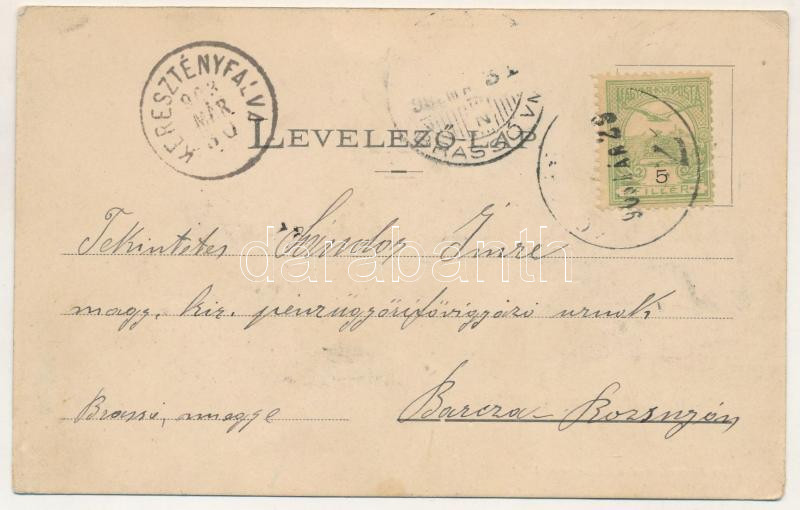 KERESZTÉNYFALVA
903
MÁR
30
31
BRASSÓ
LEVELEZŐ-LAP
MAGYAR KIR. POSTA
903 MÁR 29
5
FILLÉR
Tekintetes Sándor Imre
magy. kir. pénzügyőri fővigyázó urnak
Brassó, megye Barcza-Rozsnyón
darabanth